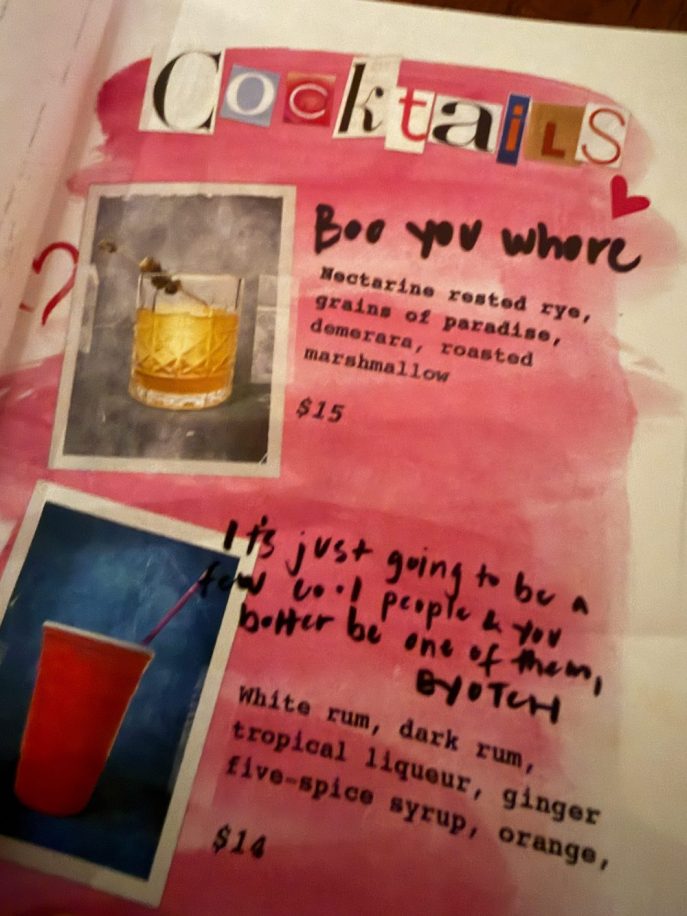 CocktaiLS
Boo you whore
Nectarine rested rye,
grains of paradise,
demerara, roasted
marshmallow
$15
It's just going to be a
few cool people & you
better be one of them,
BYOTCH
White rum, dark rum,
tropical liqueur, ginger
five-spice syrup, orange,
$14